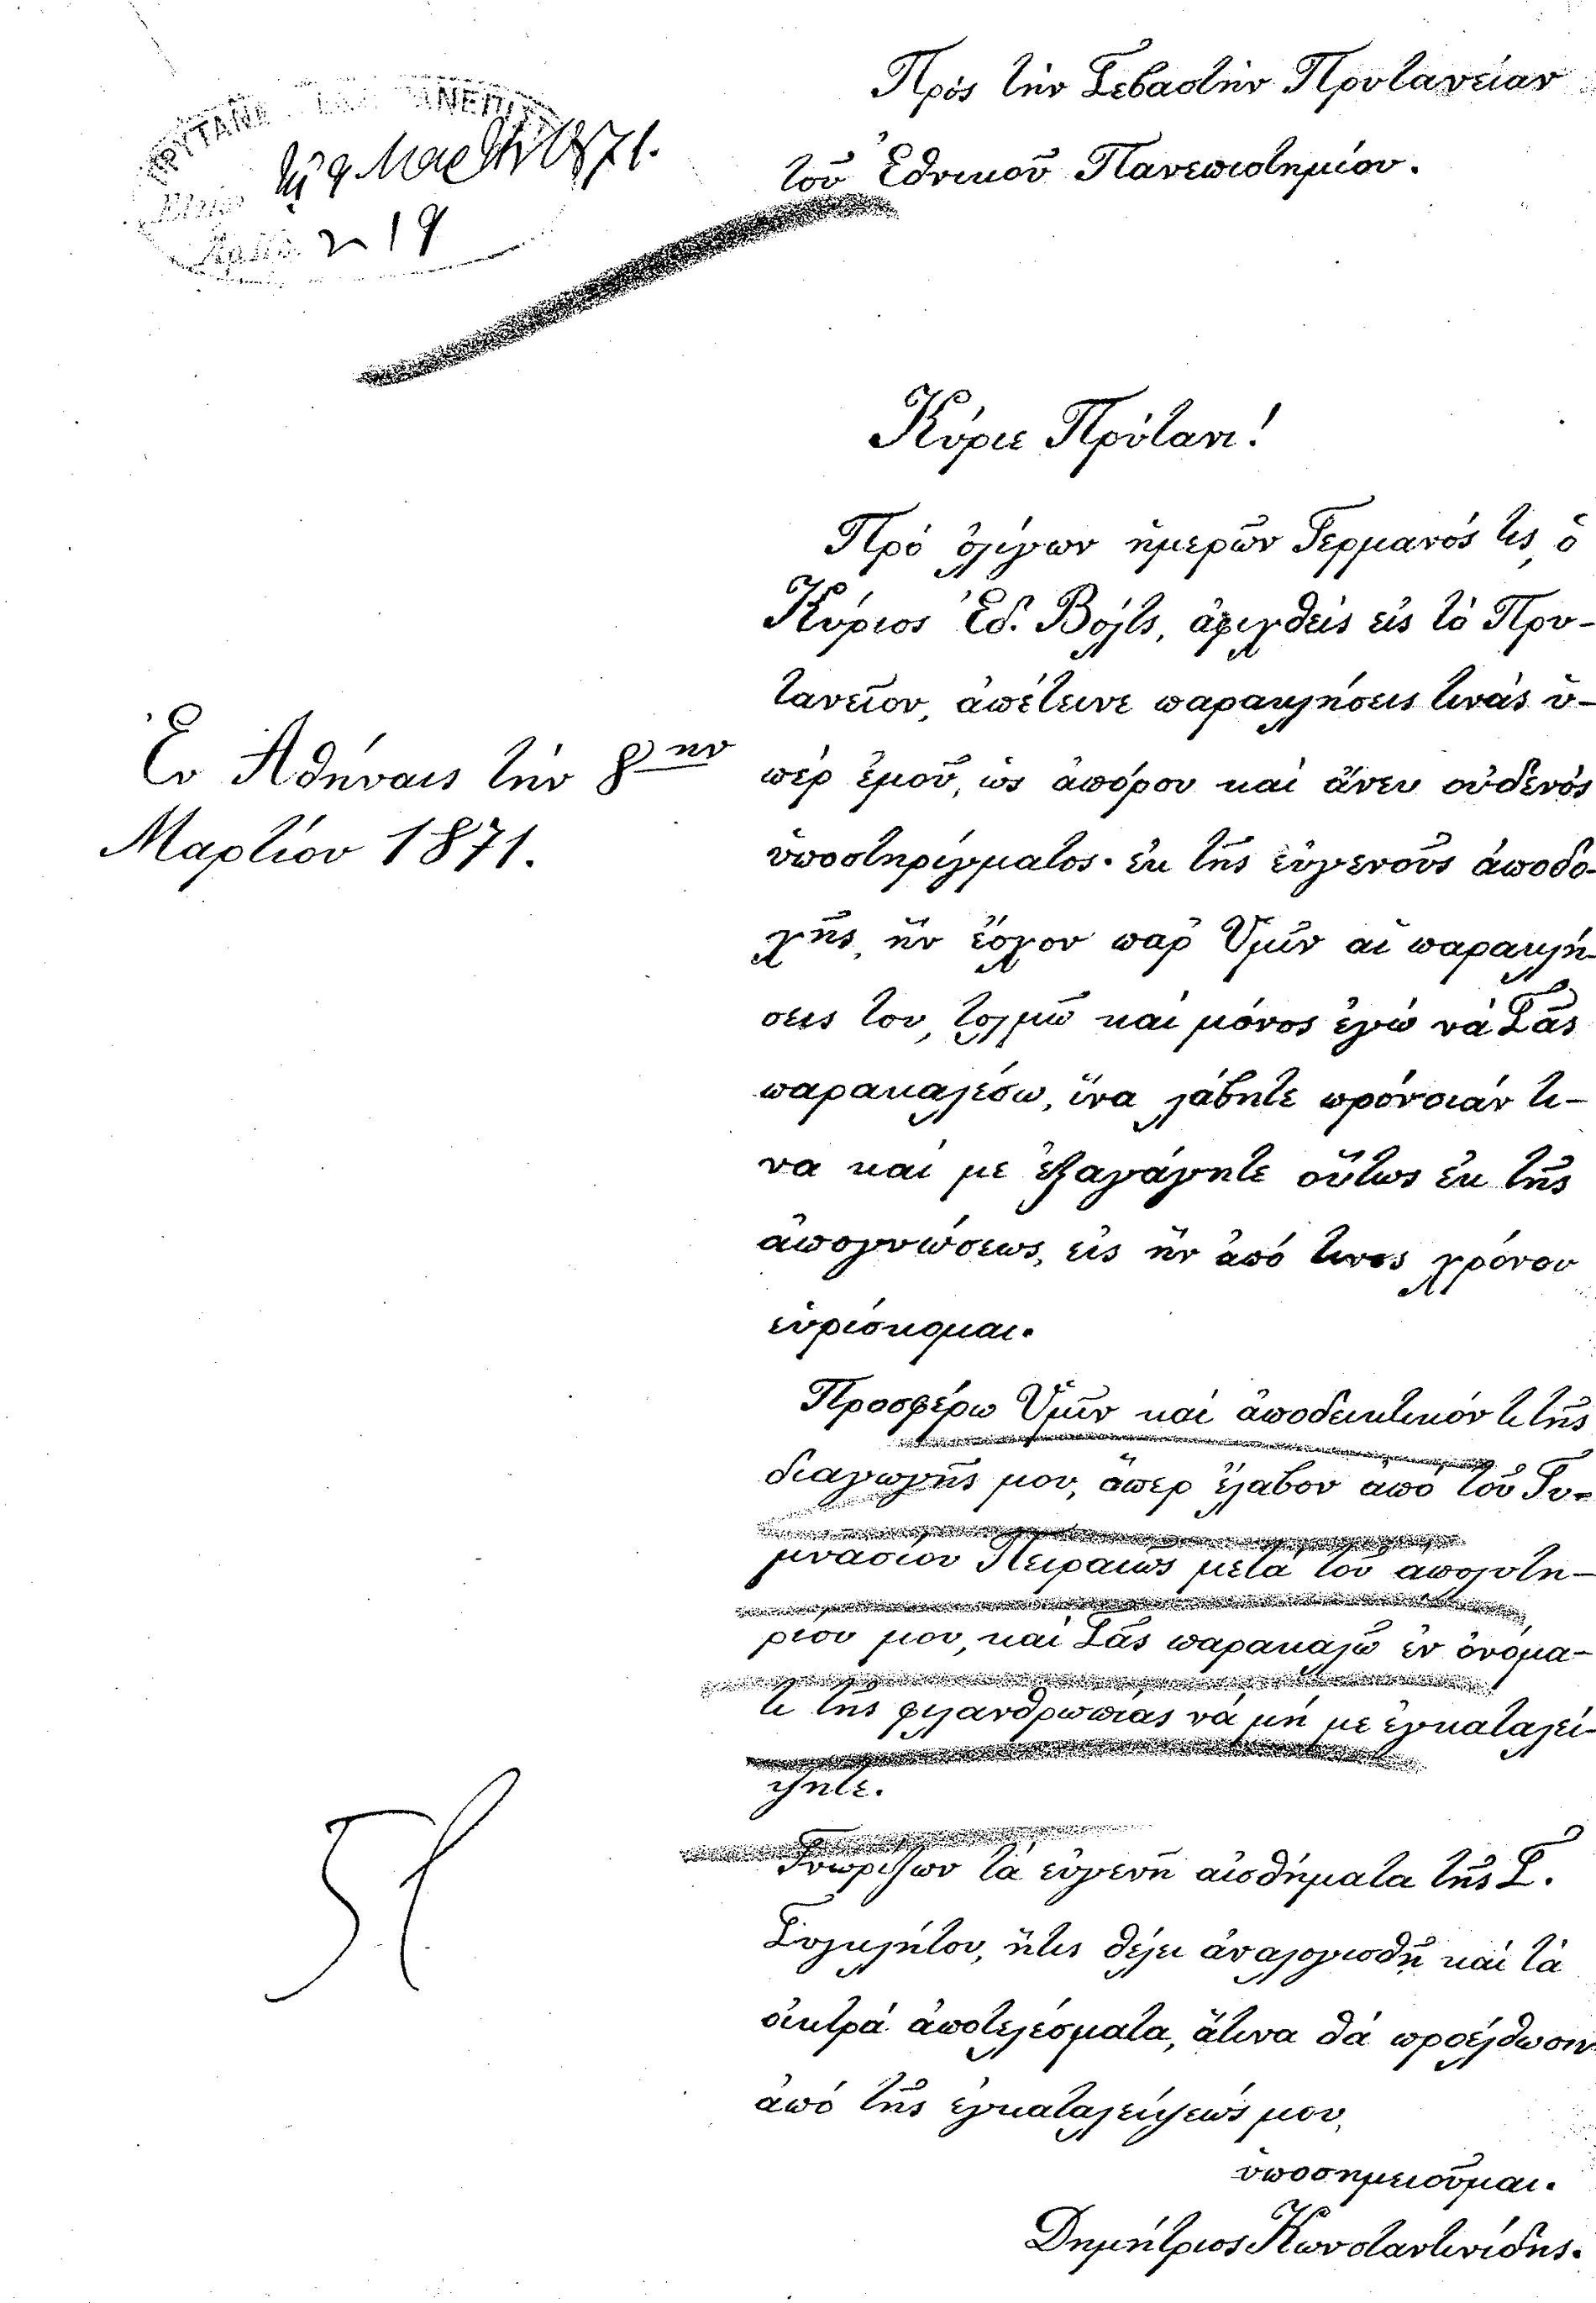 Πρὸς τὴν Σεβαστὴν Πρυτανείαν
τοῦ Ἐθνικοῦ Πανεπιστημίου.
τῇ 9 Μαρτ 1871.
219
Κύριε Πρύτανι!
Πρὸ ὀλίγων ἡμερῶν Γερμανός τις, ὁ
Κύριος Ἐδ. Βολτς, ἀφιχθεὶς εἰς τὸ Πρυ-
τανεῖον, ἀπέτεινε παρακλήσεις τινὰς ὑ-
πὲρ ἐμοῦ, ὡς ἀπόρου καὶ ἄνευ οὐδενὸς
ὑποστηρίγματος· ἐκ τῆς εὐγενοῦς ἀποδο-
χῆς, ἣν ἔσχον παρ' Ὑμῖν αἱ παρακλή-
σεις του, τολμῶ καὶ μόνος ἐγὼ νὰ Σᾶς
παρακαλέσω, ἵνα λάβητε πρόνοιάν τι-
να καὶ με ἐξαγάγητε οὕτως ἐκ τῆς
ἀπογνώσεως, εἰς ἣν ἀπό τινος χρόνου
εὑρίσκομαι.
Ἐν Ἀθήναις τὴν 8ην
Μαρτίου 1871.
Προσφέρω Ὑμῖν καὶ ἀποδεικτικόν τι τῆς
διαγωγῆς μου, ἅπερ ἔλαβον ἀπὸ τοῦ Γυ-
μνασίου Πειραιῶς μετὰ τοῦ ἀπολυτη-
ρίου μου, καὶ Σᾶς παρακαλῶ ἐν ὀνόμα-
τι τῆς φιλανθρωπίας νὰ μή με ἐγκαταλεί-
ψητε.
Γνωρίζων τὰ εὐγενῆ αἰσθήματα τῆς Σ.
Συγκλήτου, ἥτις θέλει ἀναλογισθῆ καὶ τὰ
οἰκτρὰ ἀποτελέσματα, ἅτινα θὰ προέλθωσιν
ἀπὸ τῆς ἐγκαταλείψεώς μου,
ὑποσημειοῦμαι.
Δημήτριος Κωνσταντινίδης.